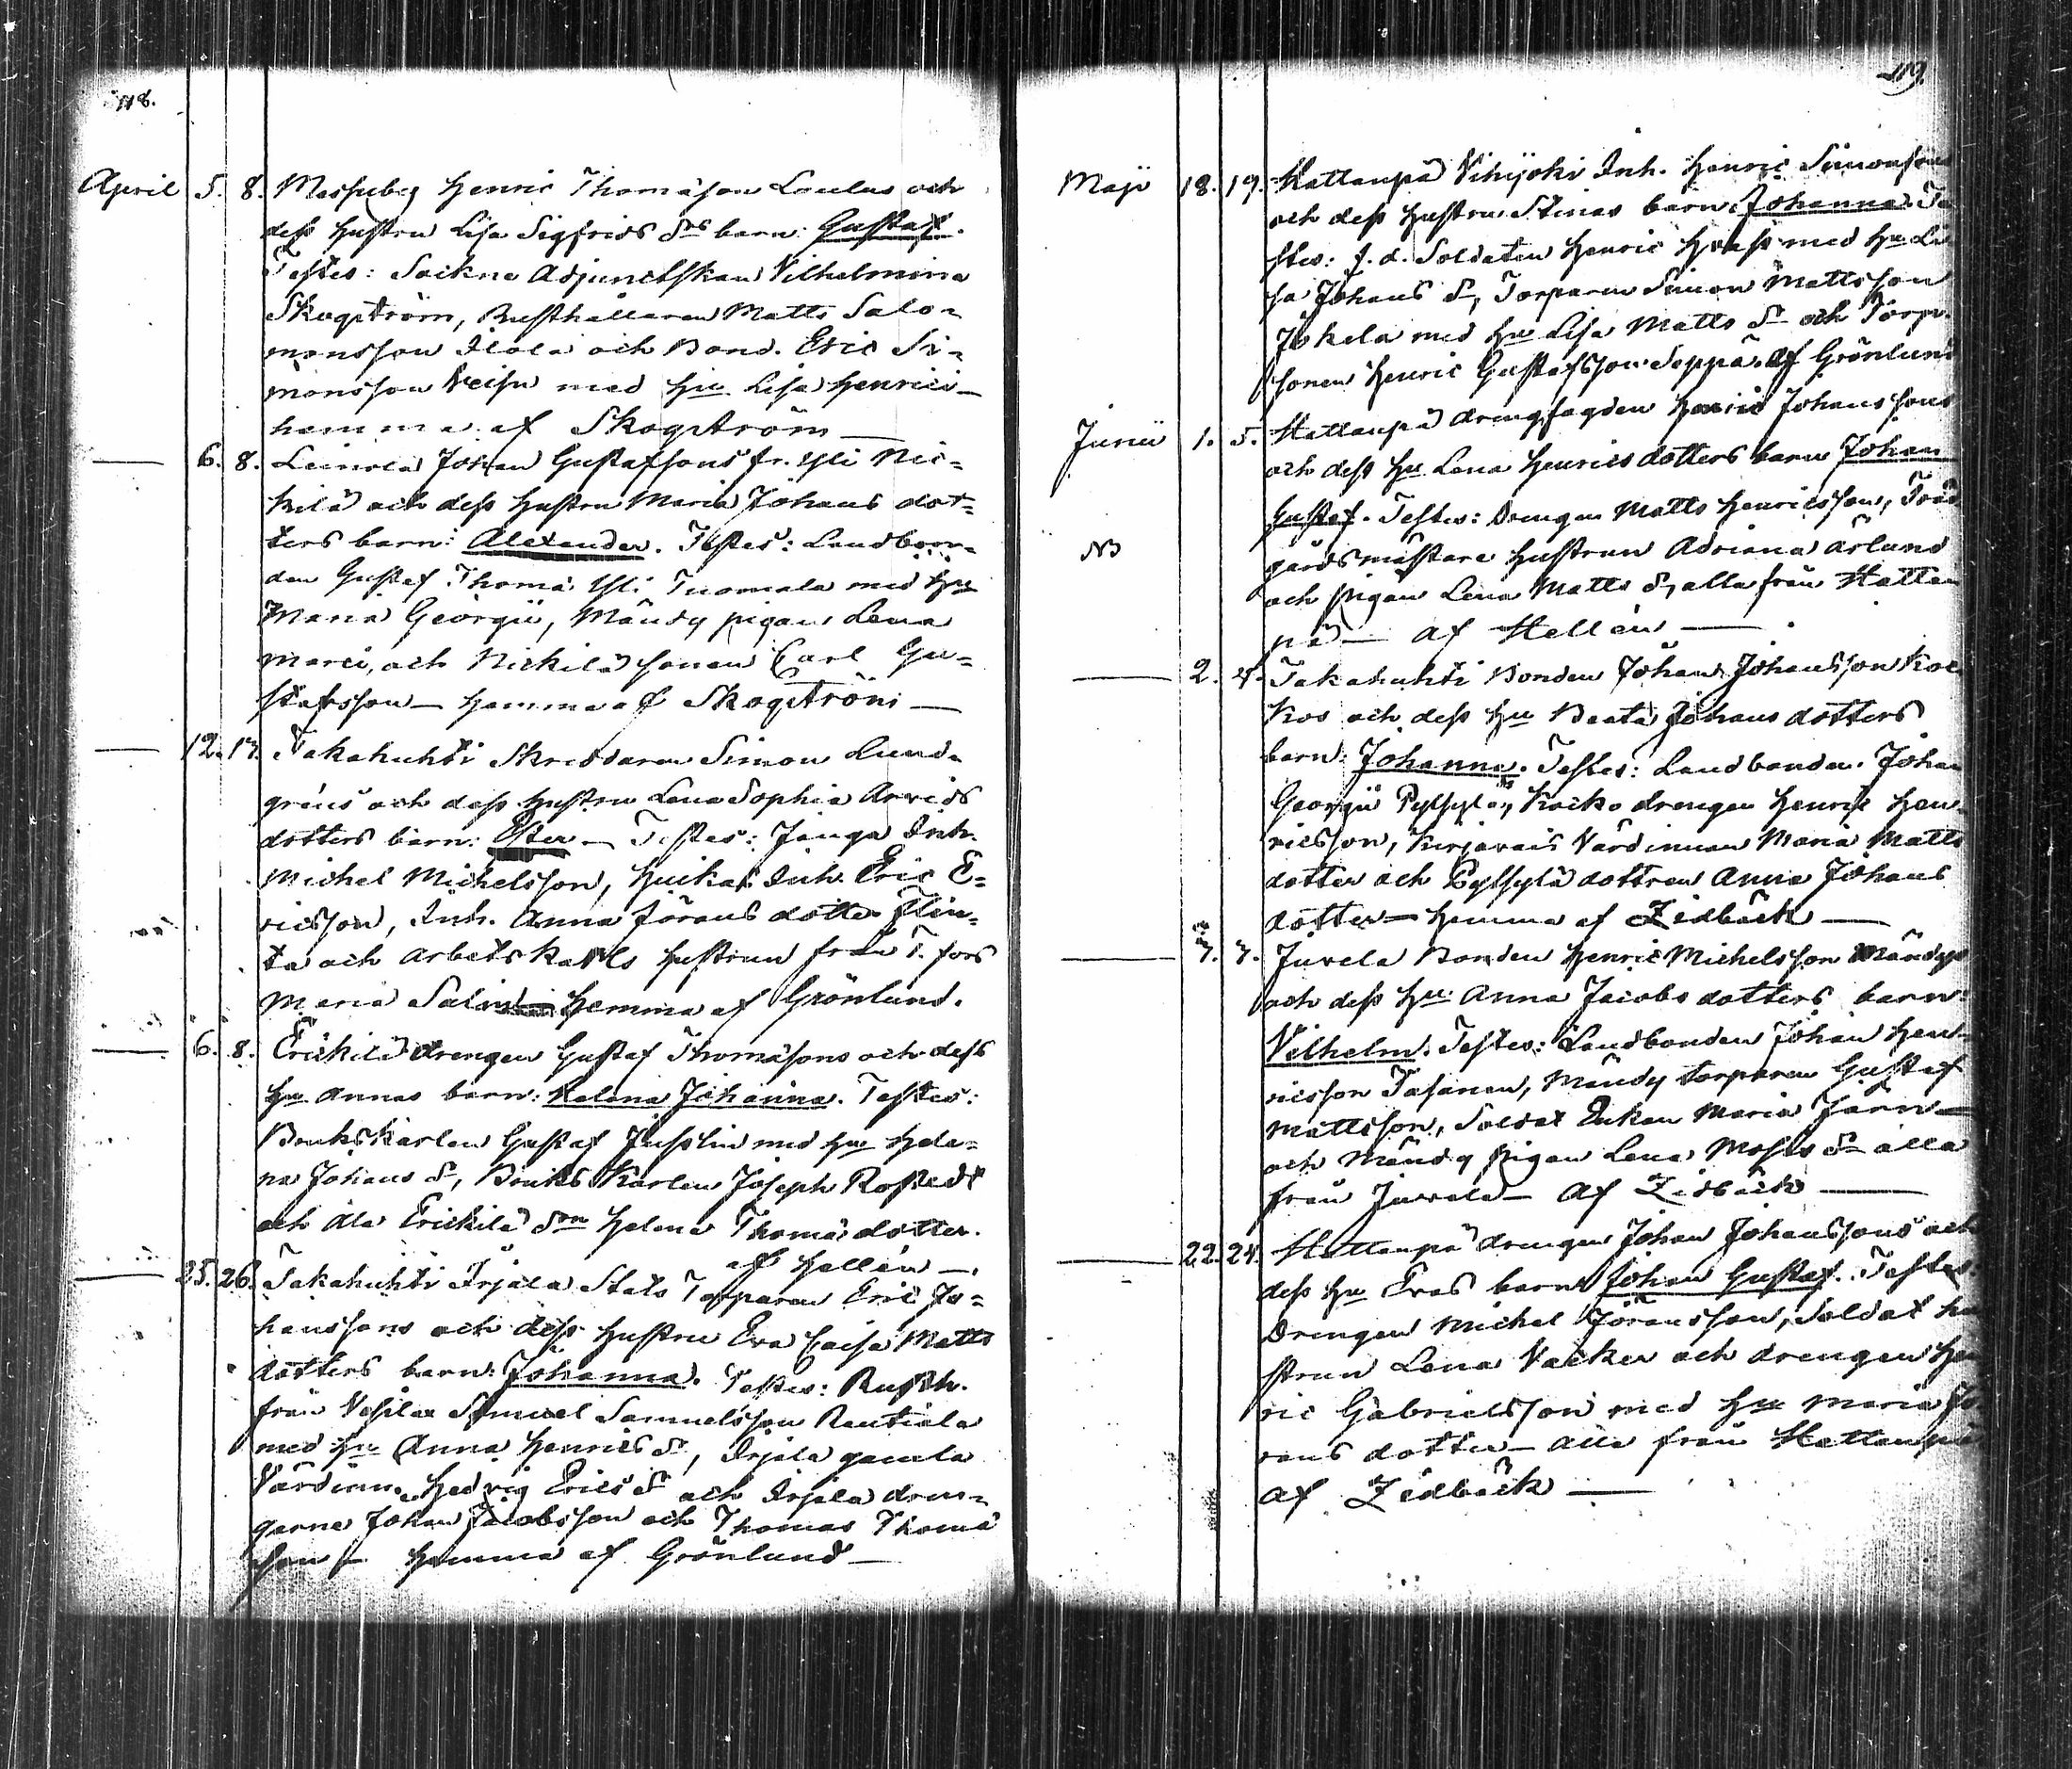 118.
April 5. 8. Messuby Henric Thomason Laulus och
dess hustru Lisa Sigfrids drs barn: Gustaf.
Testes: Sockne Adjunctskan Vilhelmina
Skogström, Rusthållaren Matts Salo=
monsson Ilola och Bond. Eric Si=
monsson Veisu med hu Lisa Henrici —
hemma af Skogström —
— 6. 8. Leinola Johan Gustafsons fr. Yli Nic=
kilä och dess hustru Maria Johans dot=
ters barn: Alexander. Testes: Landbon=
den Gustaf Thomæ Yli Tuomala med hu
Maria Georgii, Mändy pigan Lena
Marci, och Nickilä sonen Carl Gu=
stafsson — hemma af Skogström —
— 12. 17. Takahuhti Skreddaren Simon Lund=
gréns och dess hustru Lena Sophia Arvids
dotters barn: Ester — Testes: Janga Inh.
Michel Michelsson, Huikas Inh. Eric E=
ricsson, Inh. Anna Jörans dotter Flin=
ta och Arbetskarls hustrun från T. fors
Maria Salin — hemma af Grönlund.
— 6. 8. Erickilä drengen Gustaf Thomæsons och dess
hu Annas barn: Helena Johanna. Testes:
Brukskarlen Gustaf Jusslin med hu Hele=
na Johans d., Bruks Karlen Joseph Rostedt
och Ala Erickilä dr Helena Thomæ dotter.
af Hellén —
— 25. 26. Takahuhti Irjala Stats Torparen Eric Jo=
hanssons och dess hustru Eva Caisa Matts
dotters barn: Johanna. Testes: Rusth.
från Vesilax Samuel Samuelsson Rautiala
med hu Anna Henrics dr, Irjala gamla
Värdinna Hedvig Erics dr och Irjala dren=
garne Johan Jacobsson och Thomas Thomæ
son — hemma af Grönlund —
119.
Maji 18. 19. Hattanpä Vihijoki Inh. Henric Simonsons
och dess hustru Stinas barn Johanna. Te
stes: f. d. Soldaten Henric med hu Li
sa Johans dr, Torparen Simon Mattsson
Jokela med hu Lisa Matts dr och Torp.
sonen Henric Gustafsson Seppä. af Grönlund
Junii 1. 5. Hattanpä drengfogden Henric Johanssons
och dess hu Lena Henricsdotters barn Johan
Gustaf. Testes: Drengen Matts Henricsson, Träd
NB gårdsmästare hustrun Adriana Arlund
och pigan Lena Matts dr, alla från Hattan
pä — af Hellén —
— 2. 4. Takahuhti Bonden Johan Johansson Koc
kos och dess hu Beata Johans dotters
barn: Johanna. Testes: Landbonden Johan
Georgii Pylsylä, Kocko drengen Henric Hen=
ricsson, Kirjavais Värdinnan Maria Matts
dotter och Pylsylä dottren Anna Johans
dotter — hemma af Zidbäck —
— 7. 7. Juvela Bonden Henric Michelsson Mändys
och dess hu Anna Jacobs dotters barn:
Vilhelm. Testes: Landbonden Johan Hen=
ricsson Tasanen, Mändy torparen Gustaf
Mattsson, Soldat Enkan Maria Järn —
och Mändy pigan Lena Mosis dr alla
från Juvela — af Zidbäck —
— 22. 24. Hattanpä drengen Johan Johanssons och
dess hu Evas barn Johan Gustaf. Testes:
Drengen Michel Jöransson, Soldat hu
strun Lena Vacker och drengen Hen
ric Gabrielsson med hu Maria Jö
rans dotter — alla från Hattanpä
af Zidbäck —